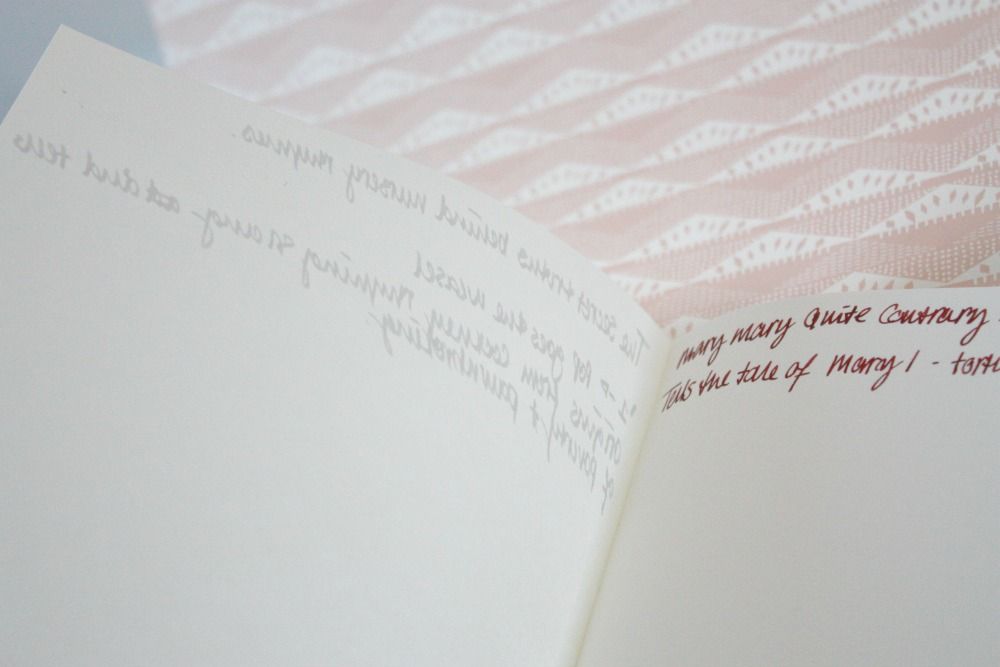 The secret truths behind nursery rhymes.
•1 → Pop goes the weasel
origins from cockney rhyming slang and tells
of poverty & pawnbroking.
mary mary Quite Contrary
Tells the tale of Mary I -